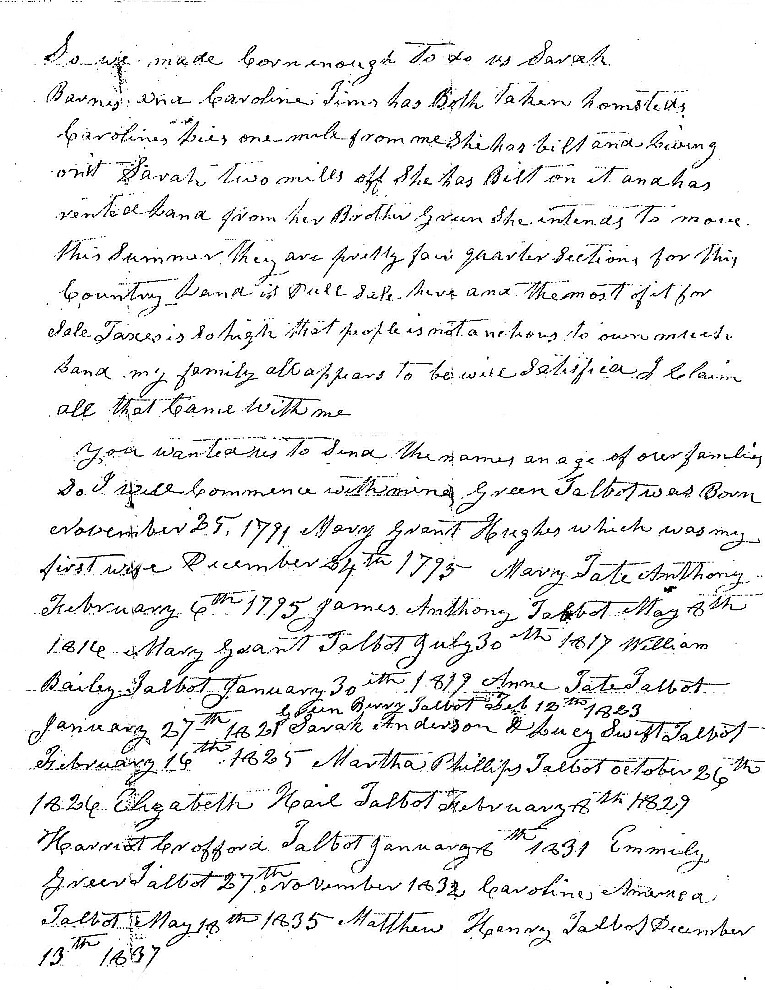 So we made Corn enough To do us Sarah
Barnes and Caroline Tims has Both Taken homsteds
Carolines Lies one mile from me She has bilt and Living
onit Sarah two mills off She has Bilt on it and has
rented Land from her Brother Green She intends to move
this Summer they are pretty fair quarter Sections for this
Country Land is Dull Sale here and the most of it for
Sale Taxes is So high that people is not anchous to own much
Land my family all appears to be well Satisfied I Claim
all that Came With me
You wanted us to Send the names an age of our families
So I will Commence with mine Green Talbot was Born
November 25, 1791 Mary Grant Hughes which was my
first wife December 24th 1795 Mary Tate Anthony
February 6th 1795 James Anthony Talbot May 8th
1816 Mary Grant Talbot July 30th 1817 William
Bailey Talbot January 30ith 1819 Anne Tate Talbot
Green Berry Talbot Feb 12th 1823
January 27th 1821 Sarah Anderson & Lucy Swift Talbot
February 16th 1825 Martha Phillips Talbot october 26th
1826 Elizabeth Hail Talbot February 8th 1829
Harriet Crofford Talbot January 8th 1831 Emmily
Green Talbot 27th November 1832 Caroline America
Talbot May 18th 1835 Matthew Henry Talbot December
13th 1837